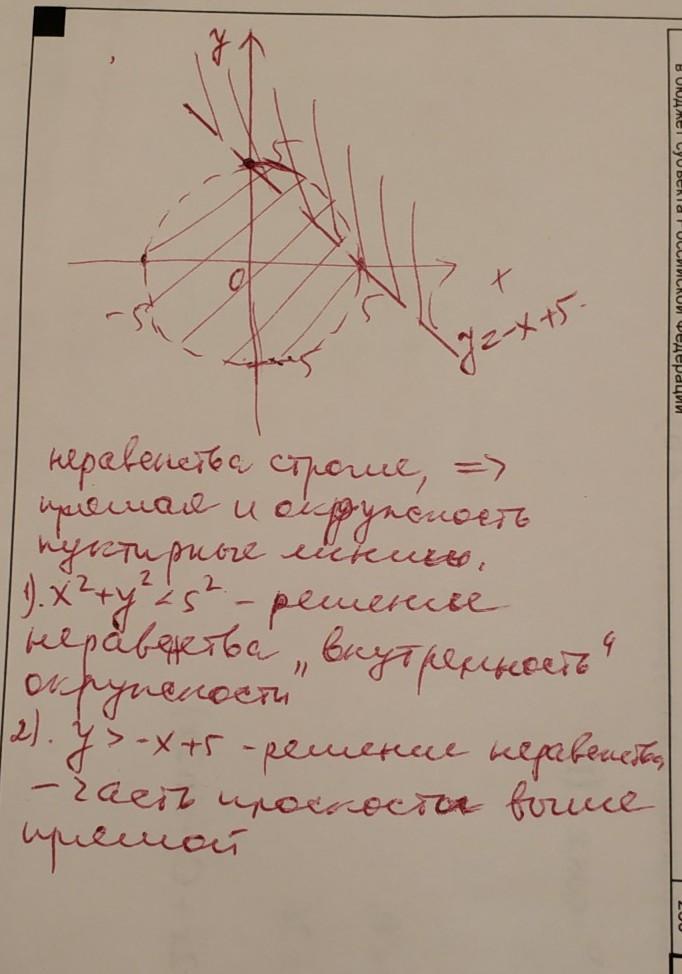 y
5
x
0
-5
5
-5
y=-x+5.
неравенства строгие, =>
прямая и окружность
пуктирные линии.
1). x²+y²<5² - решение
неравенства „внутренность“
окружности
2). y>-x+5 - решение неравенства
- часть плоскости выше
прямой
в бюджет субъекта Российской Федерации